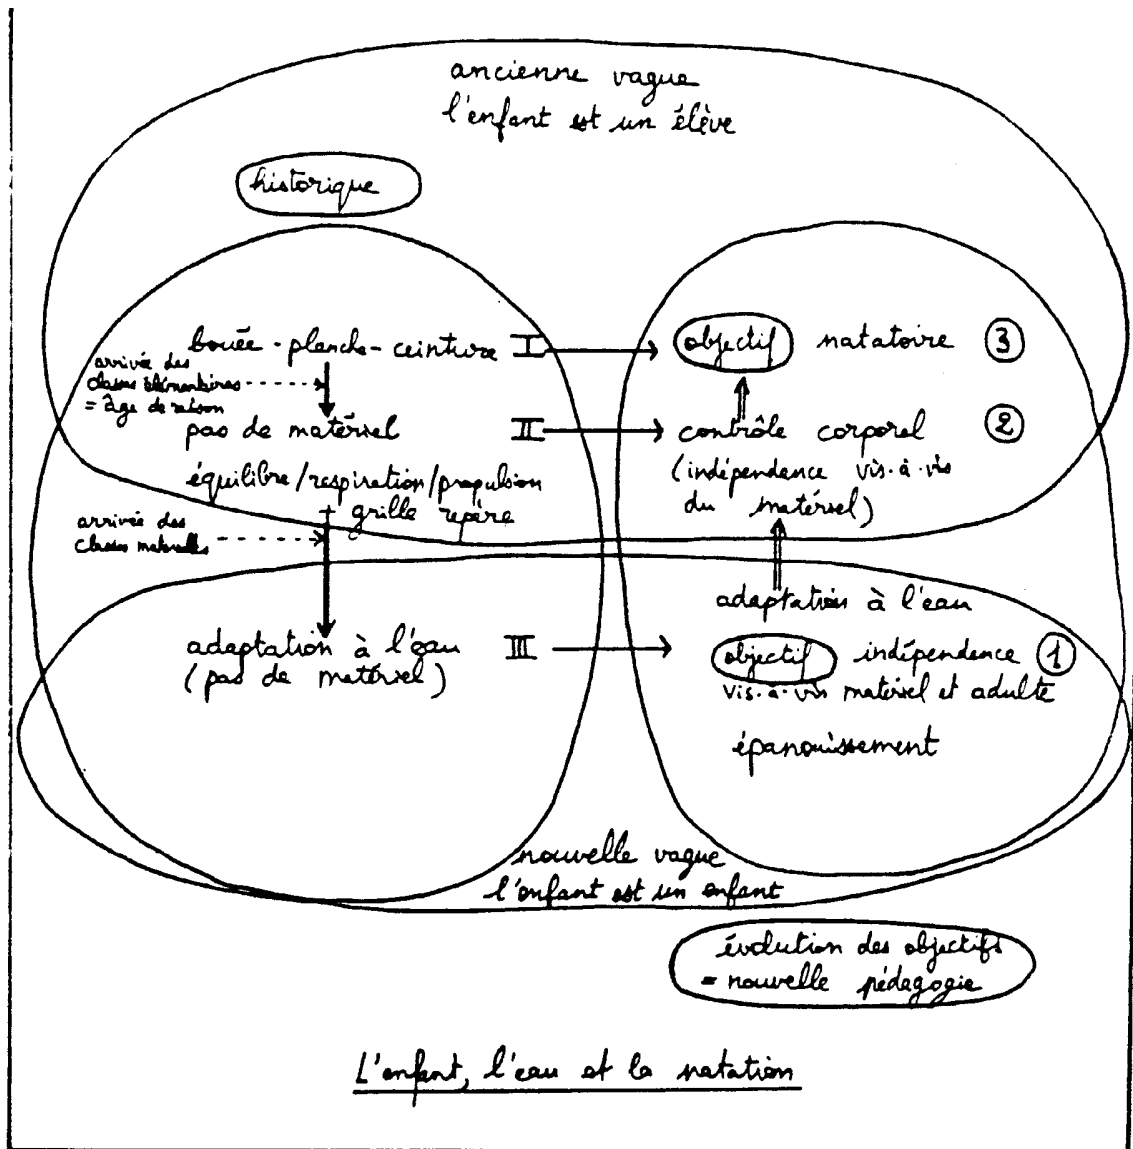 ancienne vague
l'enfant est un élève
historique
bouée - planche - ceinture I
objectif natatoire 3
arrivée des
classes élémentaires
= âge de raison
pas de matériel II
contrôle corporel 2
(indépendance vis-à-vis
du matériel)
équilibre/respiration/propulsion
+ grille repère
arrivée des
classes maternelles
adaptation à l'eau
adaptation à l'eau III
(pas de matériel)
objectif indépendence 1
vis-à-vis matériel et adulte
épanouissement
nouvelle vague
l'enfant est un enfant
évolution des objectifs
= nouvelle pédagogie
L'enfant, l'eau et la natation